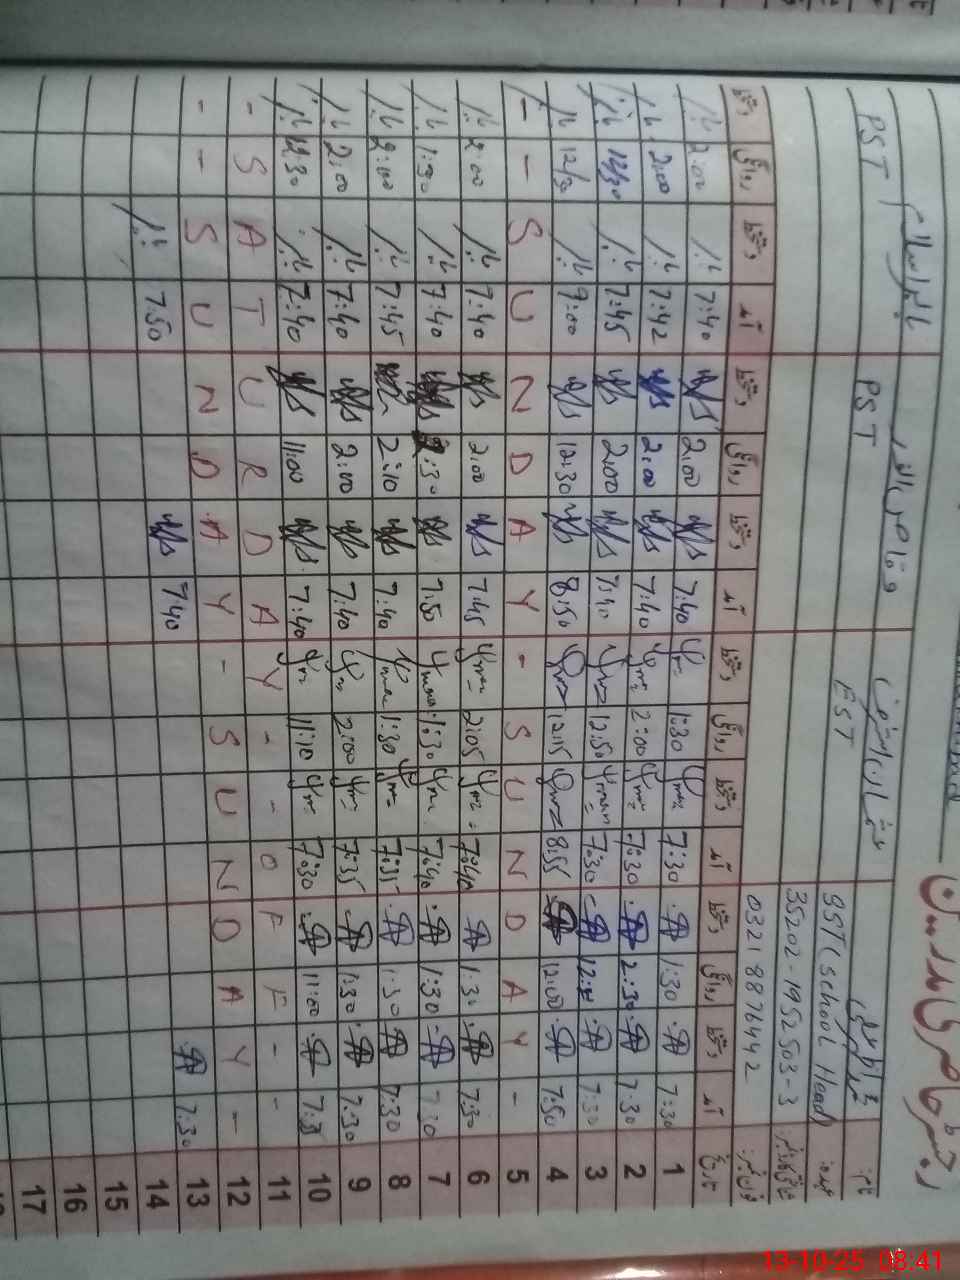 رجسٹر حاضری ملازمین
نام:
عہدہ: SST (School Head) EST PST PST
شناختی کارڈ نمبر: 35202-1952503-3
فون نمبر: 0321 8876442
تاریخ آمد دستخط روانگی دستخط آمد دستخط روانگی دستخط آمد دستخط روانگی دستخط آمد دستخط روانگی دستخط
1 7:30 1:30 7:30 1:30 7:40 2:00 7:40 2:00
2 7:30 2:30 7:30 2:00 7:40 2:00 7:42 2:00
3 7:30 7:30 12:50 7:40 2:00 7:45 12/30
4 7:50 12:00 8:55 12:15 8:50 12:30 9:00 12/30
5 - SUNDAY - SUNDAY - -
6 7:30 1:30 7:40 2:05 7:45 2:00 7:40 2:00
7 7:30 1:30 7:40 1:30 7:50 2:30 7:40 1:30
8 7:30 1:30 7:35 1:30 7:40 2:10 7:45 2:00
9 7:30 1:30 7:35 2:00 7:40 2:00 7:40 2:00
10 7:30 11:00 7:30 11:10 7:40 11:00 7:40 12:30
11 - SATURDAY - - OFF - -
12 - - SUNDAY - SUNDAY -
13 7:30 7:40 7:50
14
15
16
17
13-10-25 08:41